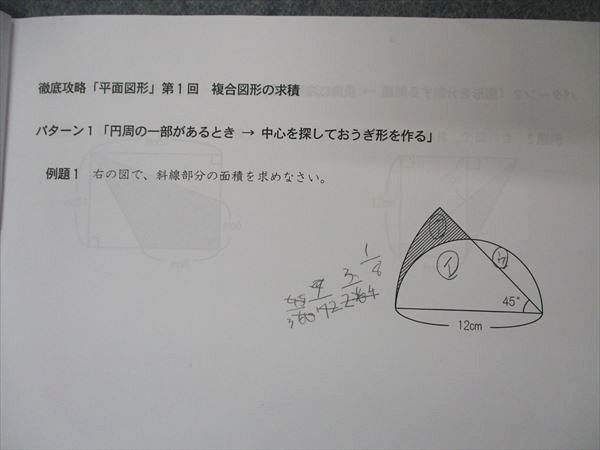 徹底攻略「平面図形」第1回　複合図形の求積
パターン1「円周の一部があるとき → 中心を探しておうぎ形を作る」
例題1　右の図で、斜線部分の面積を求めなさい。
1
8
イ
ウ
45°
12cm